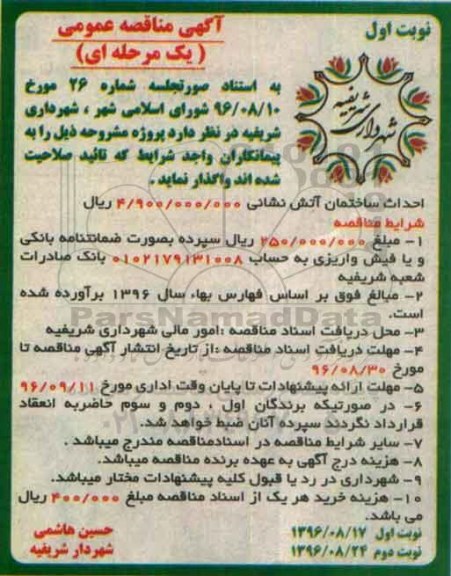 نوبت اول
آگهی مناقصه عمومی
( یک مرحله ای)
شهرداری شریفیه
به استناد صورتجلسه شماره ۲۶ مورخ
۹۶/۰۸/۱۰ شورای اسلامی شهر ، شهرداری
شریفیه در نظر دارد پروژه مشروحه ذیل را به
پیمانکاران واجد شرایط که تائید صلاحیت
شده اند واگذار نماید .
احداث ساختمان آتش نشانی ۴/۹۰۰/۰۰۰/۰۰۰ ریال
شرایط مناقصه
۱- مبلغ ۲۵۰/۰۰۰/۰۰۰ ریال سپرده بصورت ضمانتنامه بانکی
و یا فیش واریزی به حساب ۰۱۰۲۱۷۹۱۳۱۰۰۸ بانک صادرات
شعبه شریفیه
۲- مبالغ فوق بر اساس فهارس بهاء سال ۱۳۹۶ برآورده شده
است.
ParsNamadData
۳- محل دریافت اسناد مناقصه :امور مالی شهرداری شریفیه
۴- مهلت دریافت اسناد مناقصه :از تاریخ انتشار آگهی مناقصه تا
مورخ ۹۶/۰۸/۳۰
۵- مهلت ارائه پیشنهادات تا پایان وقت اداری مورخ ۹۶/۰۹/۱۱
۶- در صورتیکه برندگان اول ، دوم و سوم حاضربه انعقاد
قرارداد نگردند سپرده آنان ضبط خواهد شد.
۷- سایر شرایط مناقصه در اسنادمناقصه مندرج میباشد .
۸- هزینه درج آگهی به عهده برنده مناقصه میباشد.
۹- شهرداری در رد یا قبول کلیه پیشنهادات مختار میباشد.
۱۰- هزینه خرید هر یک از اسناد مناقصه مبلغ ۴۰۰/۰۰۰ ریال
می باشد.
نوبت اول ۱۳۹۶/۰۸/۱۷
نوبت دوم ۱۳۹۶/۰۸/۲۴
حسین هاشمی
شهردار شریفیه